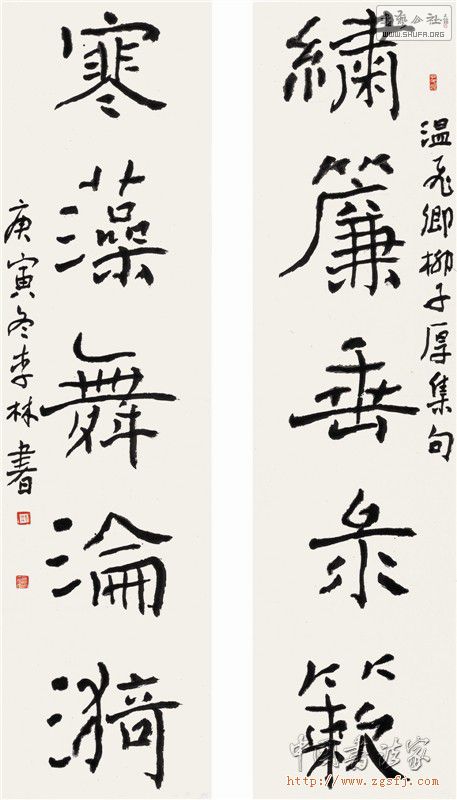 WWW.SHUFA.ORG
温飛卿柳子厚集句
繡簾垂彔簌
寒藻舞淪漪
庚寅冬李林書
中国书法家
http://www.zgsfj.com